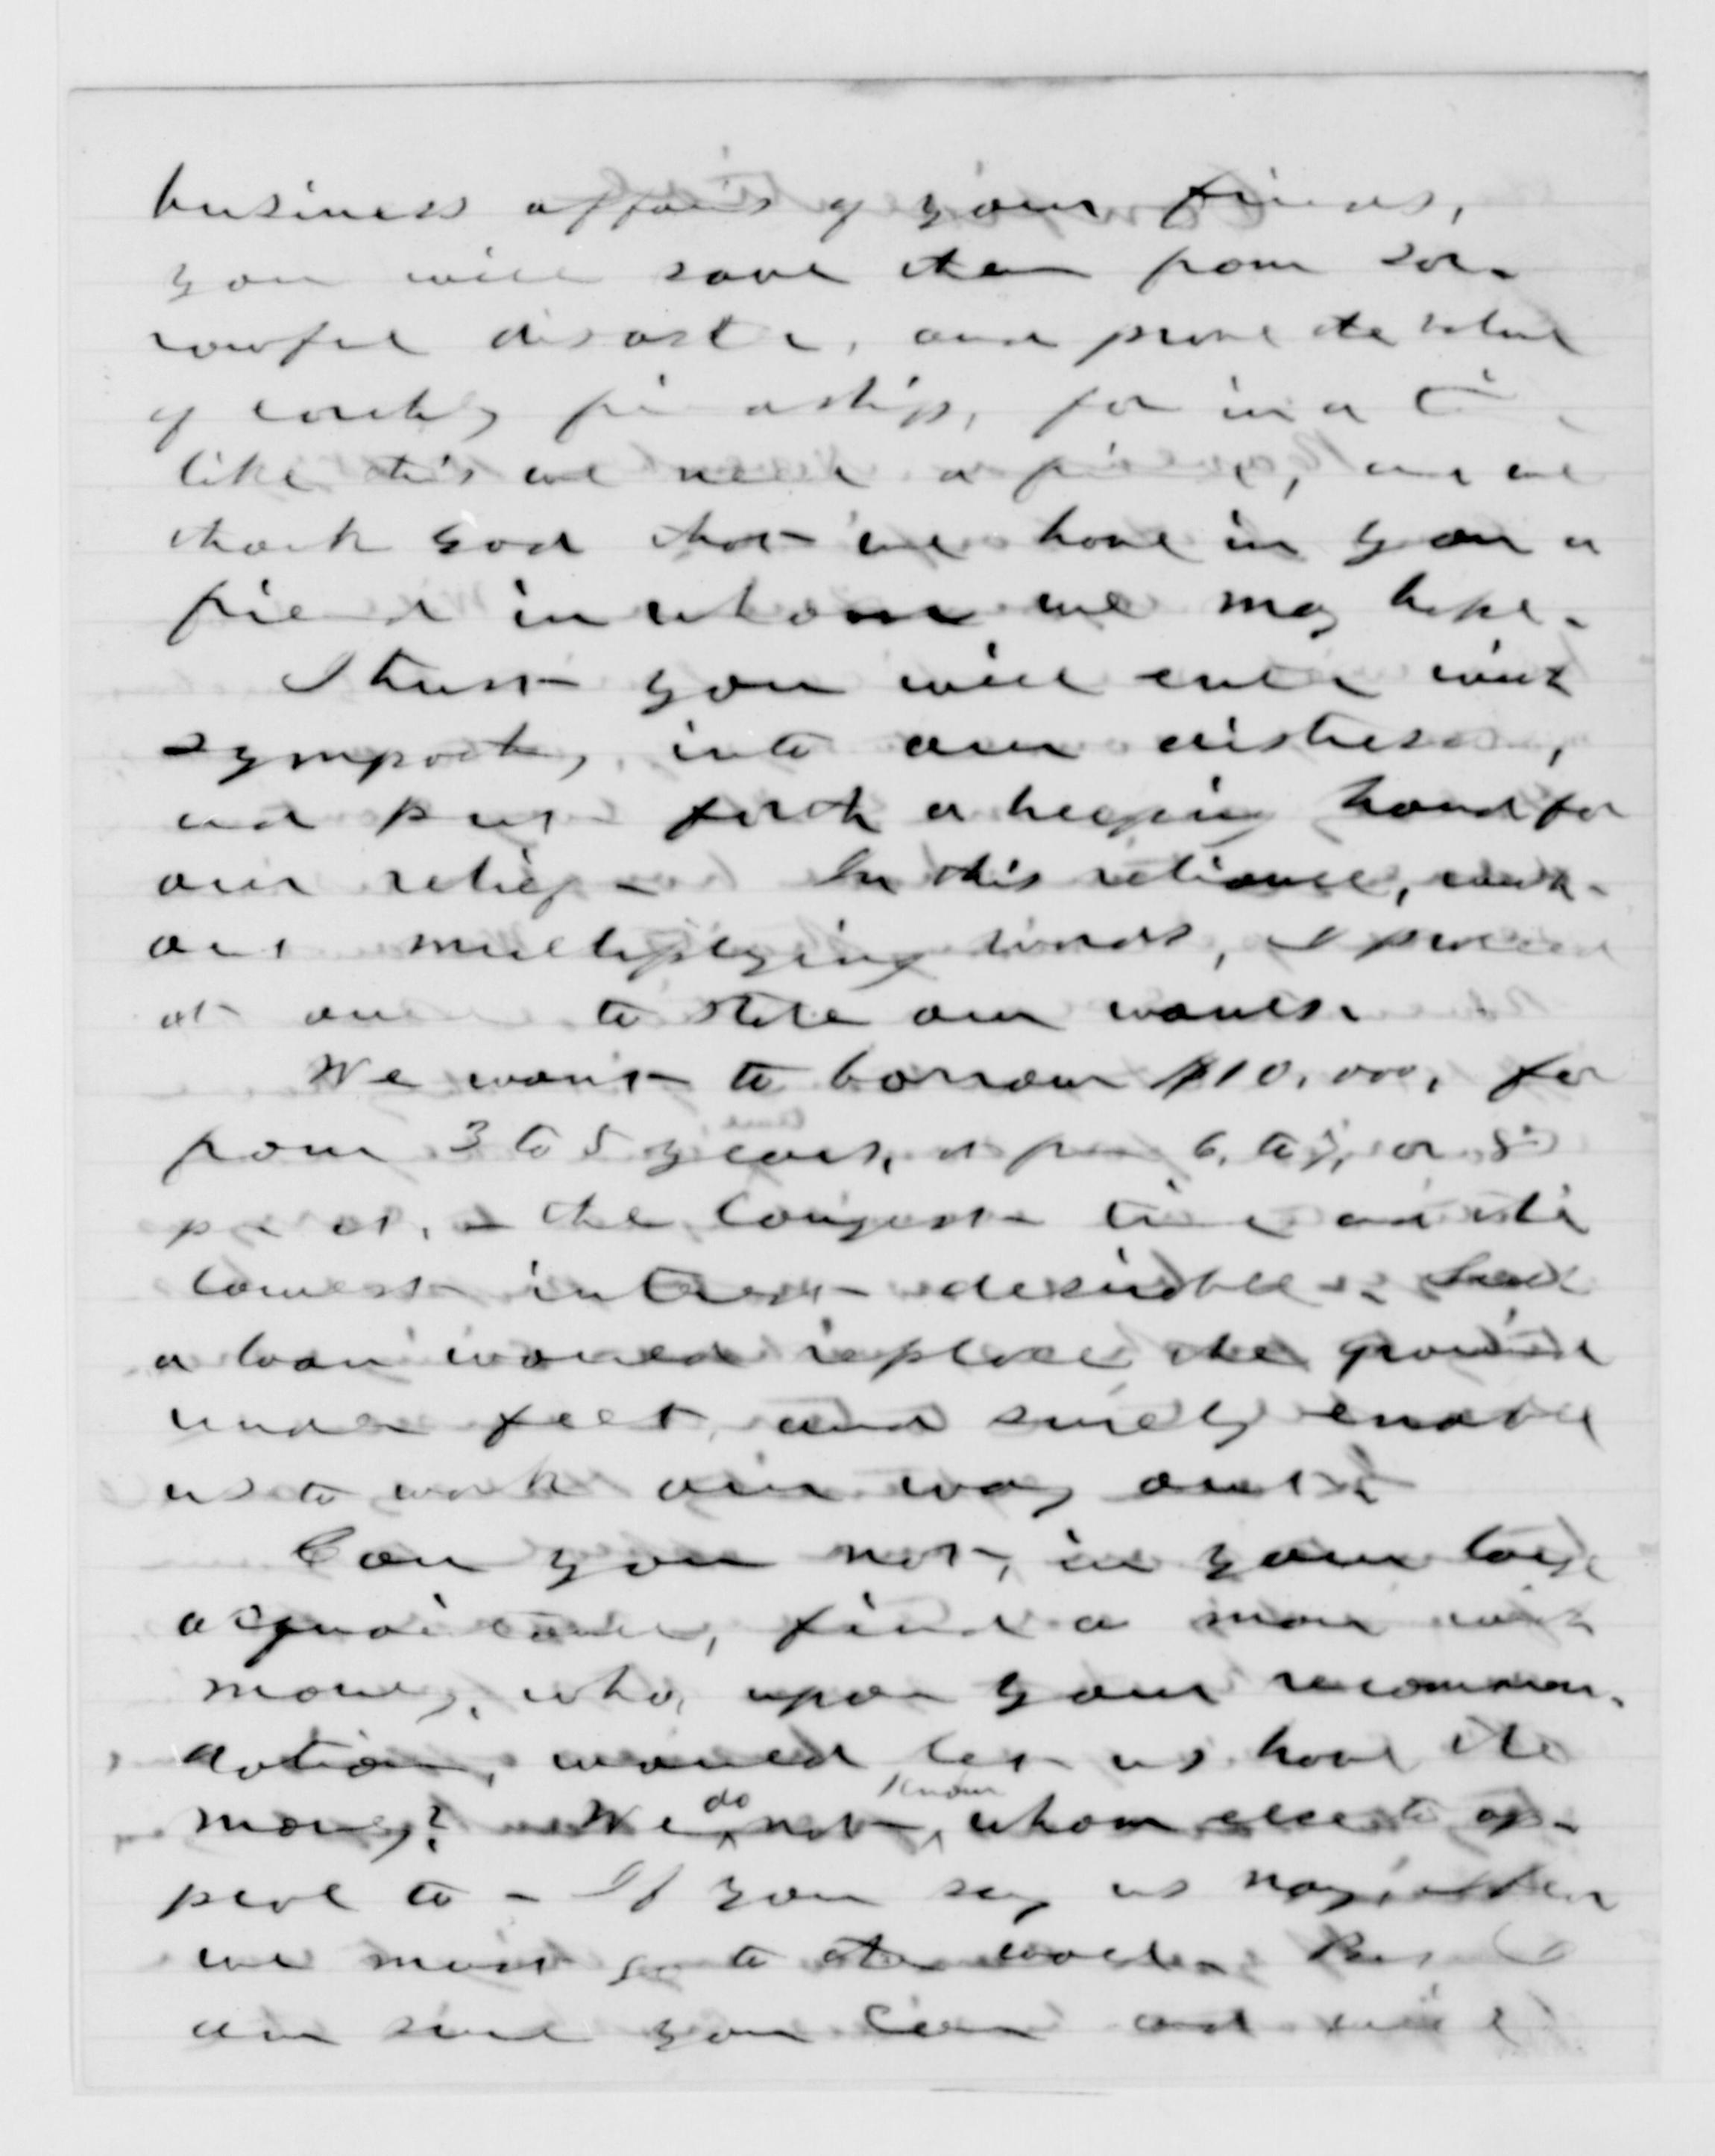 business affairs of your friends,
you will save them from sor-
rowful disaster, and prove the value
of earthly friendship, for in a time
like this we need a friend, and we
thank God that we have in you a
friend in whom we may hope.
I trust you will enter with
sympathy, into our distress,
and put forth a helping hand for
our relief - In this reliance, with-
out multiplying words, I proceed
at once to state our wants.
We want to borrow $10,000, for
from 3 to 5 years, at from 6, to 7, or 8
per ct. - the longest time and the
lowest interest desirable. Such
a loan would replace the ground
under feet, and surely enable
us to work our way out.
Can you not, in your large
acquaintance, find a man with
money, who, upon your recommen-
dation, would let us have the
money? We do not know whom else to ap-
peal to - If you say us nay, then
we must go to the wall. But I
am sure you can and will